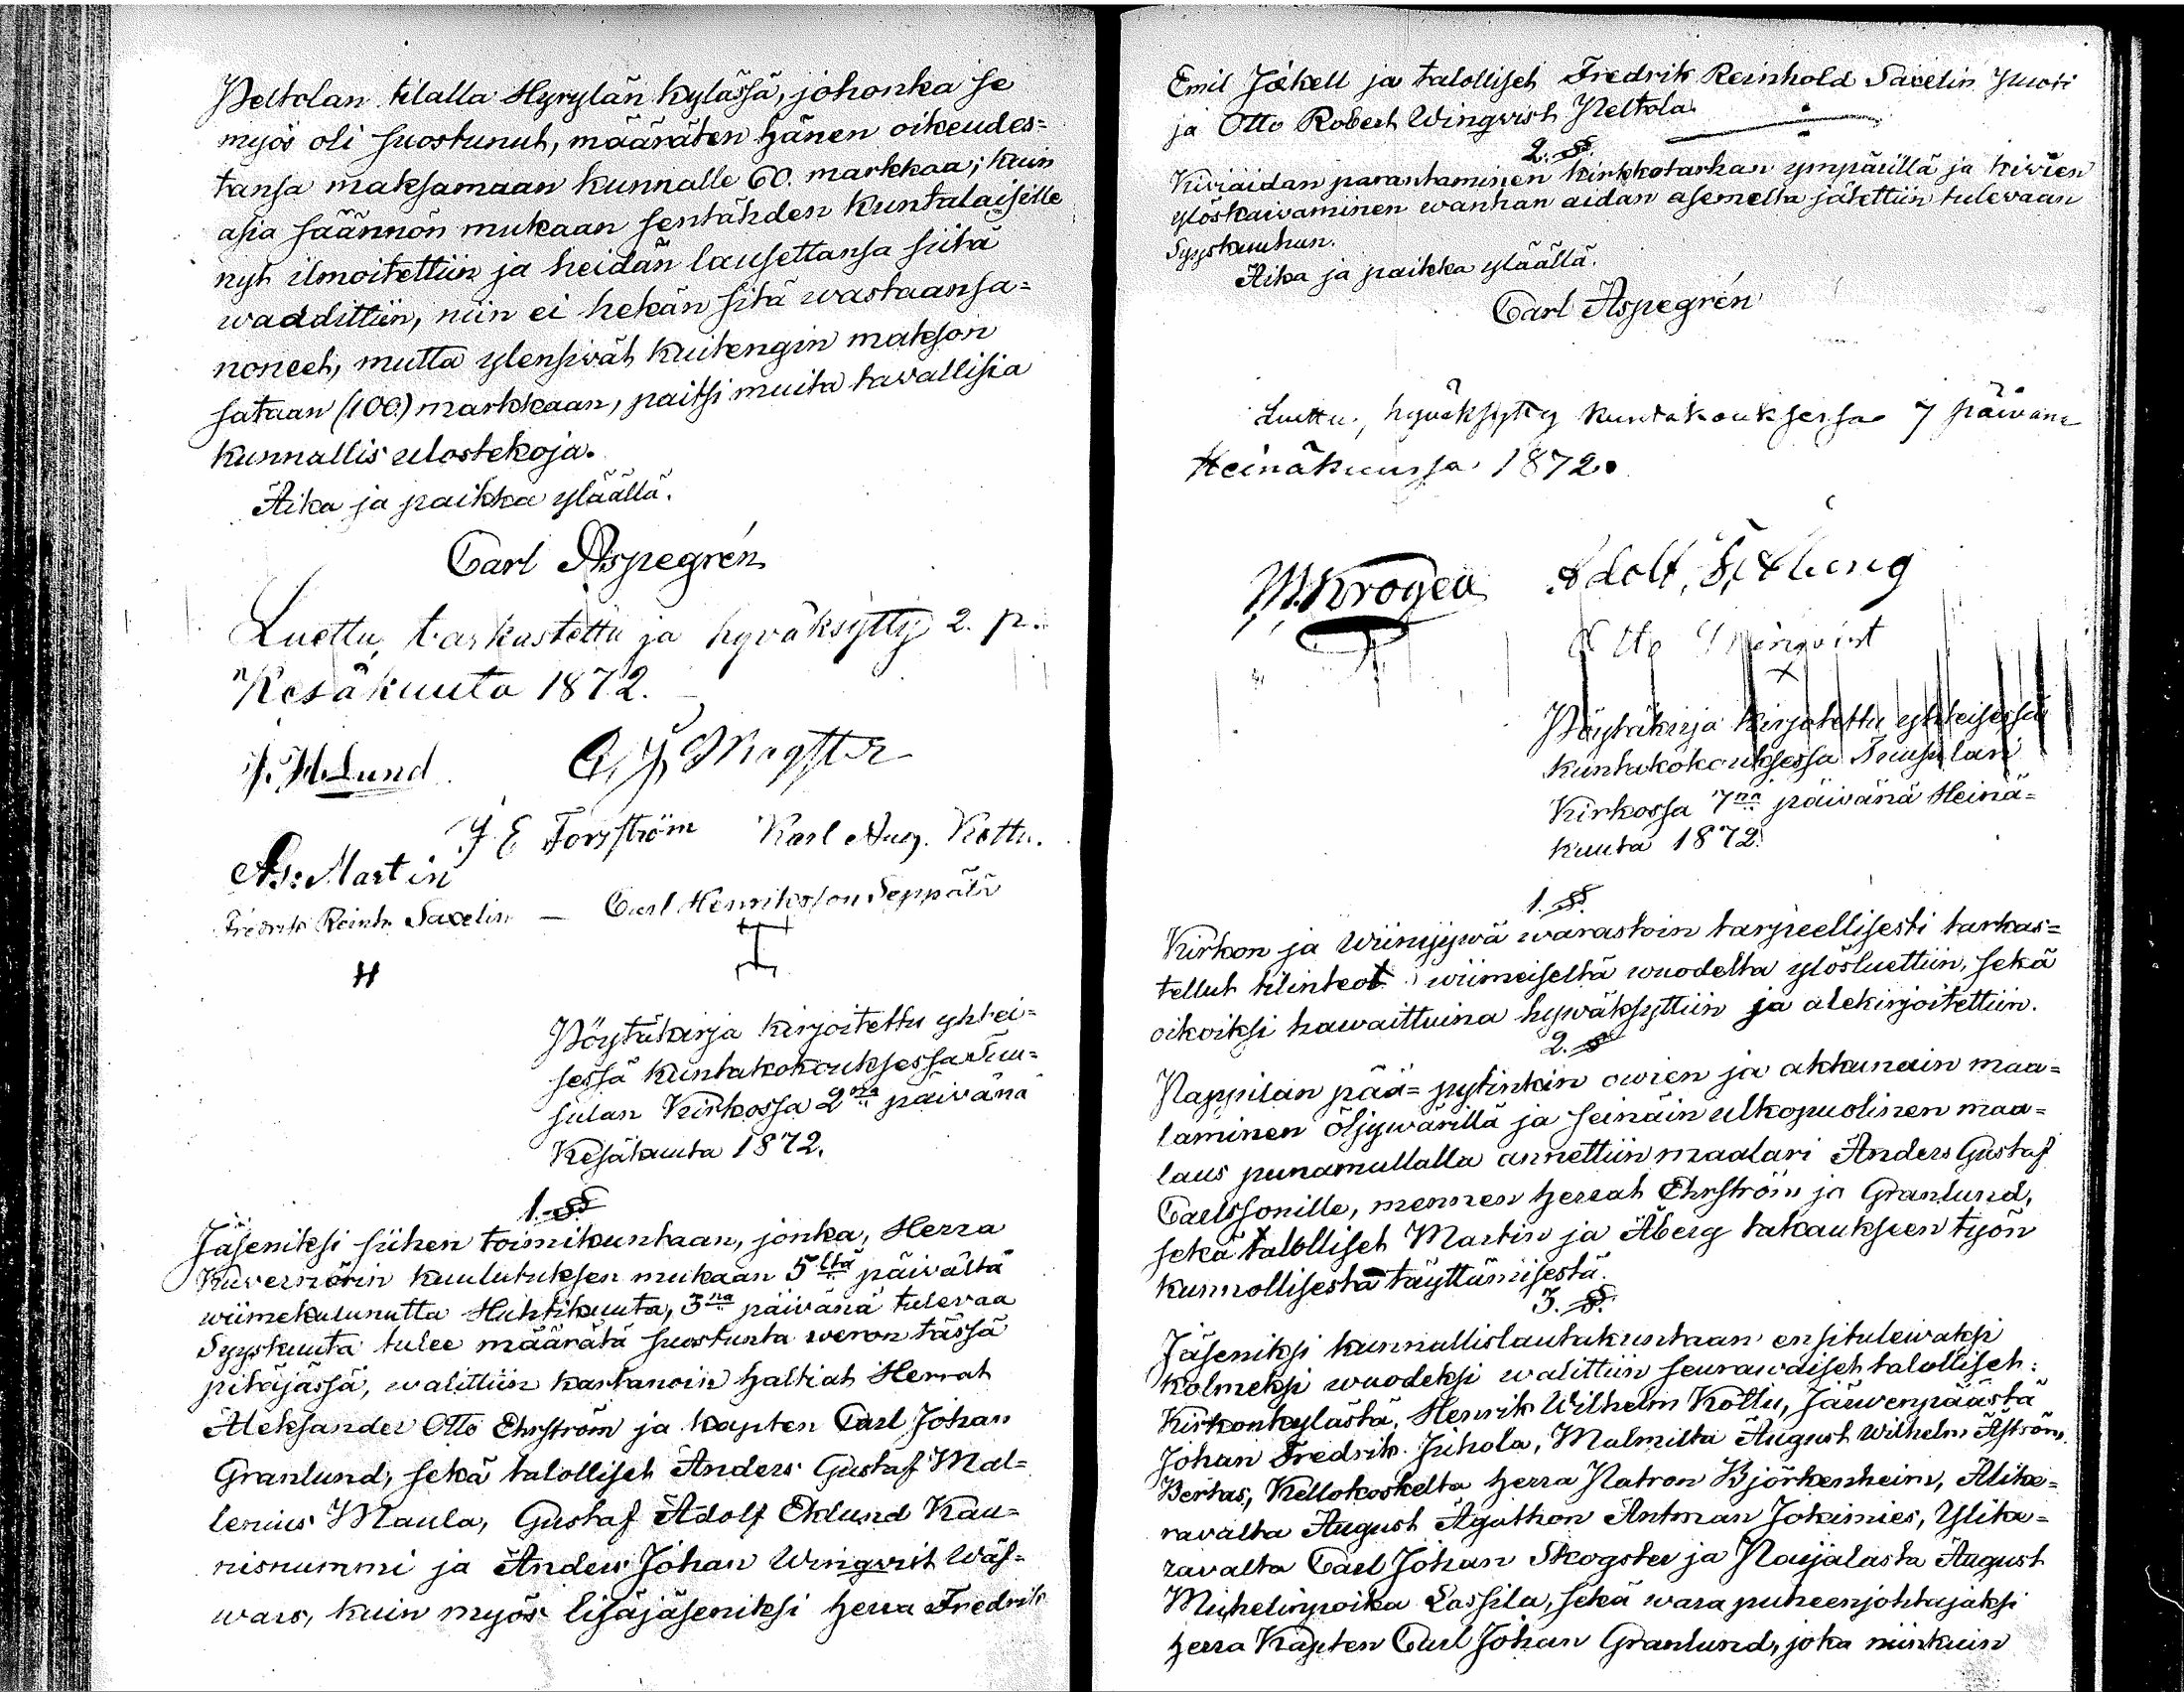 Peltolan tilalla Hyrylän kylässä, johonka se
myös oli suostunut, määräten hänen oikeudes=
tansa maksamaan kunnalle 60. markkaa; kuin
asia säännön mukaan sentähden kuntalaisille
nyt ilmoitettiin ja heidän lausettansa siitä
waadittiin, niin ei hekän sitä wastaansa=
noneet, mutta ylensivät kuitengin makson
sataan (100) markkaan, paitsi muita tavallisia
kunnallis ulostekoja.
Aika ja paikka ylläällä.
Carl Aspegrén
Luettu, tarkastettu ja hyväksytty 2. p.
Kesäkuuta 1872.
J. H. Lund
J E Forsström Karl Aug. Kottu.
As: Martin
Fredrik Reinh. Saxelin — Carl Henriksson Seppälä
Pöytäkirja kirjoitettu yhtei=
sessä kuntakokouksessa Tuu=
sulan Kirkossa 2na päivänä
Kesäkuuta 1872.
1. §
Jäseniksi siihen toimikuntaan, jonka, Herra
Kuvernörin kuulutuksen mukaan 5ltä päivältä
wiimekulunutta Huhtikuuta, 3na päivänä tulevaa
Syyskuuta tulee määrätä suostunta weron tässä
pitäjässä, walittiin kartanoin haltiat Herrat
Aleksander Otto Ehrström ja kapten Carl Johan
Granlund, sekä talolliset Anders Gustaf Mal=
lenius Maula, Gustaf Adolf Eklund Kau=
nisnummi ja Anders Johan Wingvist Wäs=
wars, kuin myös lisäjäseniksi herra Fredrik
Emil Jäkell ja talolliset Fredrik Reinhold Saxelin Juoti
ja Otto Robert Wingvist Peltola.
2. §.
Kiviaidan parantaminen kirkkotarhan ympärillä ja kivien
ylöskaivaminen wanhan aidan asemelta jätettiin tulevaan
Syyskuuhun.
Aika ja paikka ylläällä.
Carl Aspegrén
Luettu, hyväksytty kuntakouksessa 7 päivänä
Heinäkuussa 1872.
M. Krogell Adolf
Otto Wingvist
Pöytäkirja kirjotettu yhteisessä
kuntakokouksessa Tuusulan
Kirkossa 7nä päivänä Heinä=
kuuta 1872.
1. §.
Kirkon ja Wiinijywä warastoin tarpeellisesti tarkas=
tellut tilinteot wiimeiseltä wuodelta ylösluettiin, sekä
oikoiksi hawaittuina hywäksyttiin ja alekirjoitettiin.
2. §
Pappilan pää=pytinkin owien ja akkunain maa=
laminen öljywärillä ja seinäin ulkopuolinen maa=
laus punamullalla annettiin maalari Anders Gustaf
Carlssonille, mennen herrat Ehrström ja Granlund,
sekä talolliset Martin ja Åberg takaukseen työn
kunnollisesta täyttämisestä.
3. §.
Jäseniksi kunnallislautakuntaan ensitulewaksi
kolmeksi wuodeksi walittiin seurawaiset talolliset:
Kirkonkylästä, Henrik Wilhelm Kottu, Järwenpäästä
Johan Fredrik Juhola, Malmilta August Wilhelm Åström
Bertas, Kellokoskelta herra Patron Björkenheim, Alike=
ravalta August Agathon Antman Jokimies, Ylike=
ravalta Carl Johan Skogster ja Paijalasta August
Mickelinpoika Lassila, sekä wara puheenjohtajaksi
herra Kapten Carl Johan Granlund, joka niinkuin